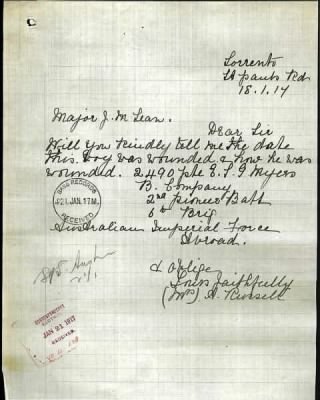 Sorrento
St pauls Rd
18.1.17
Major J. M Lean.
Dear Sir
Will you kindly tell me the date
this boy was wounded & how he was
wounded. 2490 pte E. S. G Myers
B. Company
2nd pioneer Batt
6th Brig
Australian Imperial Force
Abroad.
& oblige
Yours faithfully
(Mrs) A. Russell
BASE RECORDS
21 JAN. 17
RECEIVED
JAN 21 1917